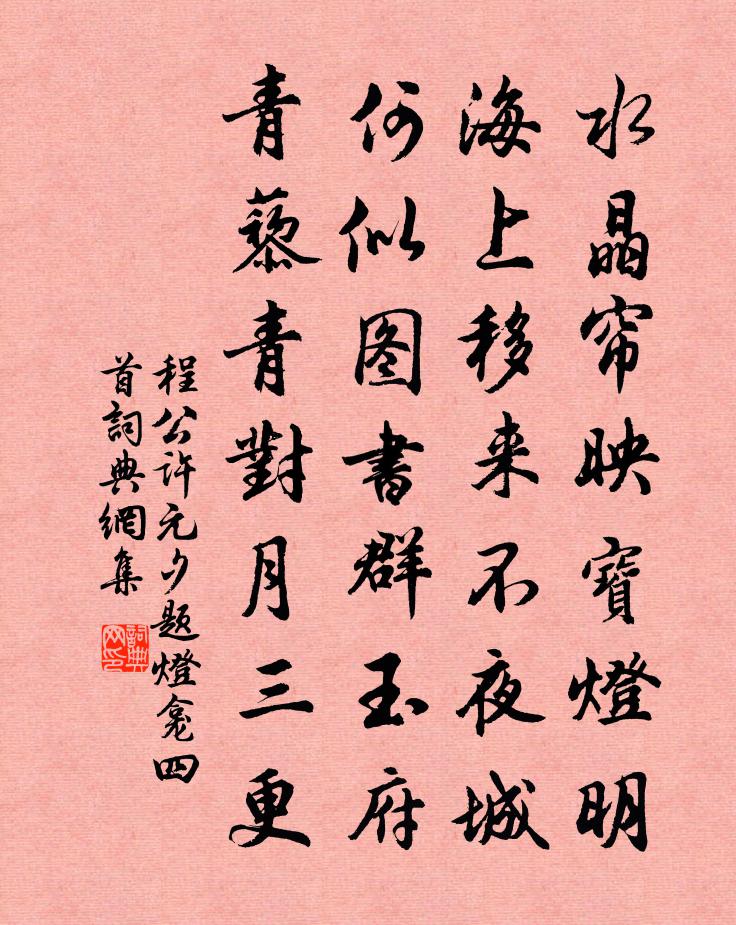 水晶帘映寶燈明
海上移来不夜城
何似图書群玉府
青藜青對月三更
程公许元夕题燈龛四
首詞典網集
詞典网印